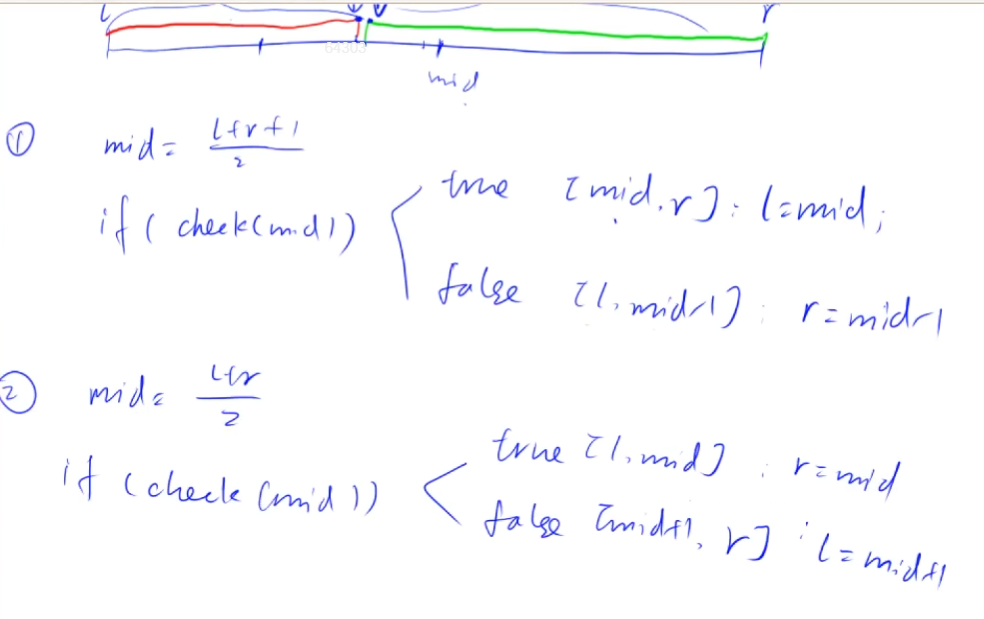 l r
mid
① mid = l+r+1 / 2
if ( check(mid)) true [mid, r] : l=mid;
false [l, mid-1] : r=mid-1
② mid = l+r / 2
if (check (mid)) true [l, mid] : r=mid
false [mid+1, r] : l=mid+1